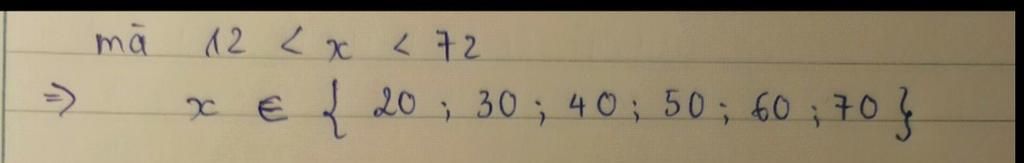 mà 12 < x < 72
=> x ∈ { 20 ; 30 ; 40 ; 50 ; 60 ; 70 }